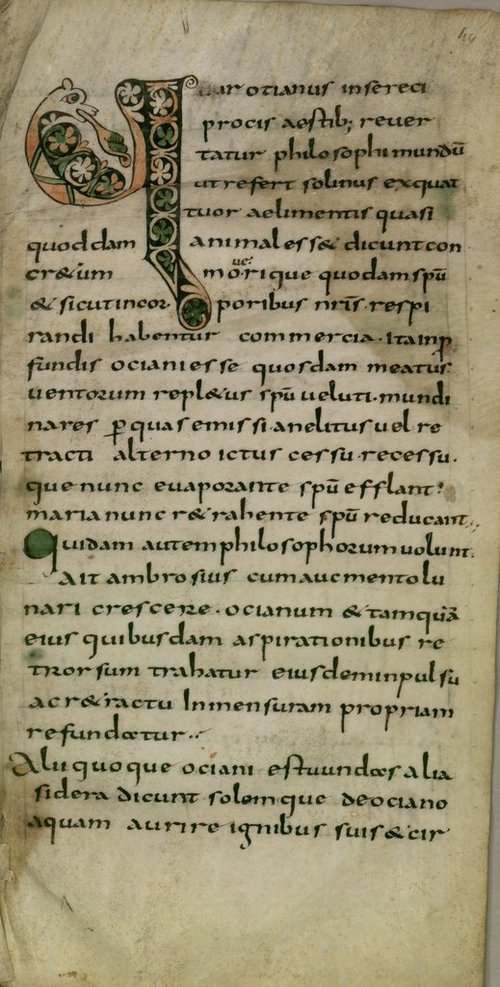 Quur otianus insereci
procis aestib; rever
tatur philosophi mundū
ut refert solinus exquat
tuor aelimentis quasi
quoddam animal esse & dicunt con
cr&um mo ri que quodam spū
& sicut incor poribus nrīs respi
randi habentur commercia · ita inp
fundis ociani esse quosdam meatus
ventorum repl&us spū veluti · mundi
nares p quas emissi · anelitus vel re
tracti alterno ictus cessu · recessu ·
que nunc evaporante spū efflant
maria nunc r&rahente spū reducant
Quidam autem philosophorum volunt
Ait ambrosius cum aucmento lu
nari crescere · ocianum & tamquā
eius quibusdam aspirationibus re
trorsum trahatur eiusdem inpulsu
ac r&ractu Inmensuram propriam
refundatur ··
Alii quoque ociani estu undas alia
sidera dicunt solemque de ociano
aquam aurire ignibus suis & cir